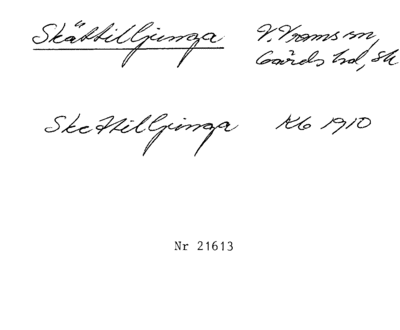 Skättilljunga V. Vrams sn,
Gärds hd, Sk
Skettilljunga Kb 1910
Nr 21613